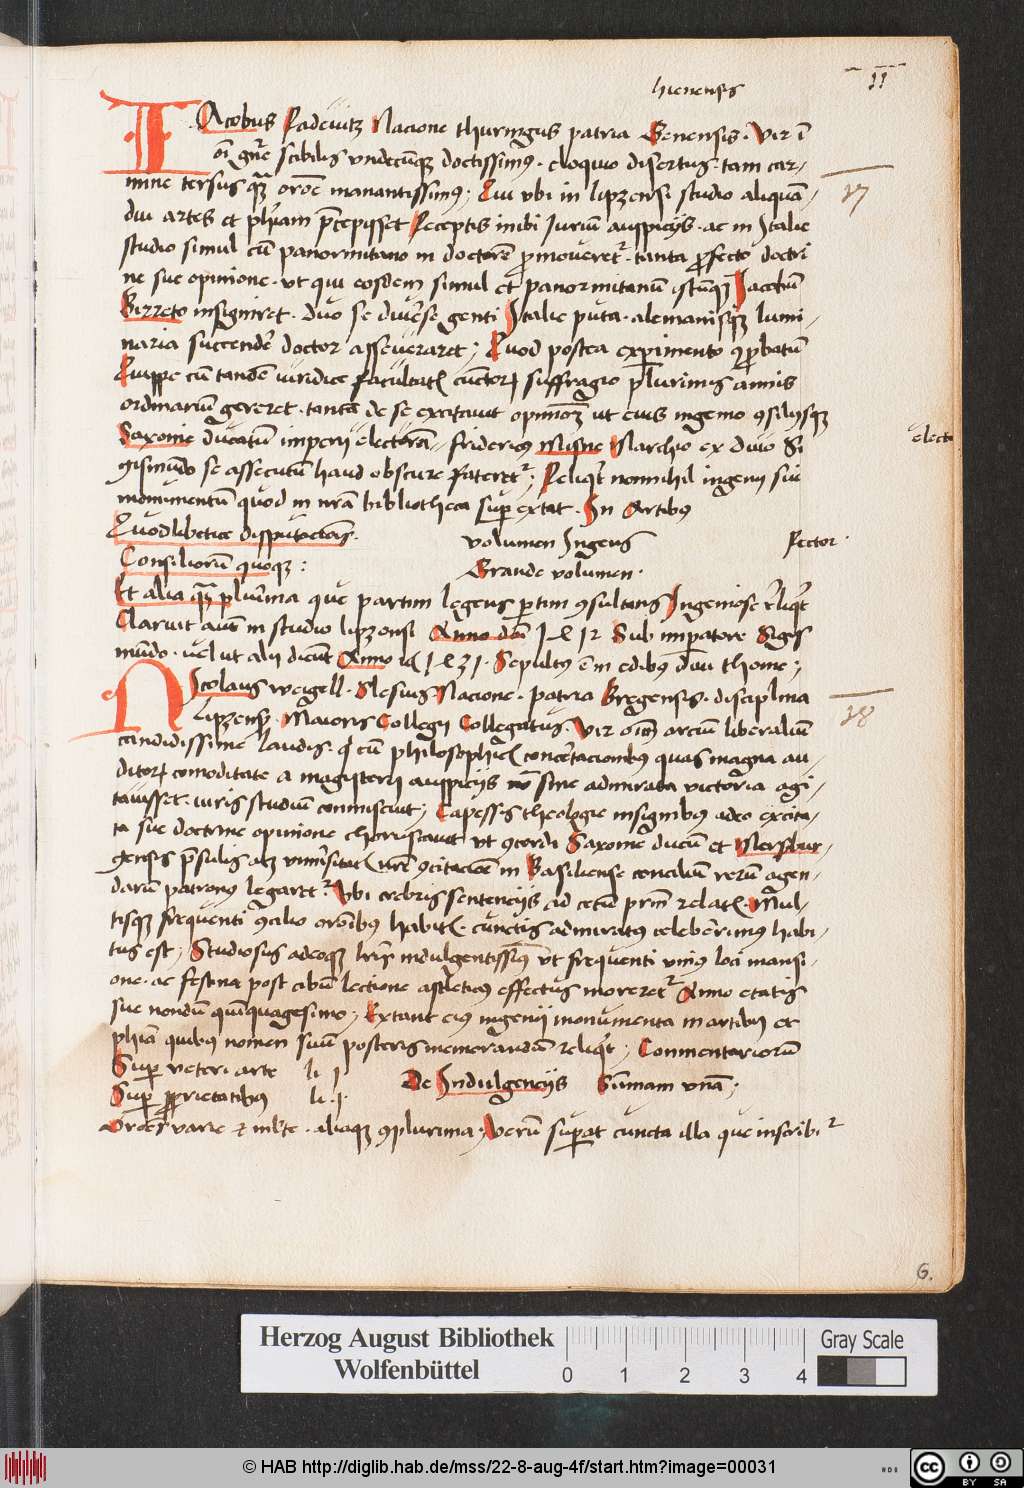 hienensis
11
IAcobus Radewitz Nacione thuringus patria Genensis. Vir i
oi gne scibilis undecunqz doctissimus. eloquio disertus. tam car-
mine tersus qz oroe manantissimus; Qui ubi in lipzensi studio aliquā-
17
diu artes et phiam pcepisset Receptis inibi Iurium auspicijs. ac in Italie
studio simul cū panormitano in doctore promoveret. tanta profecto doctri
ne sue opinione. ut qui eosdem simul et panormitanū Iacobum
Birreto insigniret. duo se diverse genti Italie puta. alemanisqz lumi-
naria succendere doctor asseveraret; Quod postea experimento probatū
Quippe cū tandē iuridice facultatis suffragio plurimis annis
ordinariū gereret. tantā de se excitavit ut eius ingenio
Saxonie ducatum imperij electorā- fridericus Misne Marchio ex divo Si
elect
gismūdo se assecutum haud obscure fateret; Reliqt nonnihil ingenij sui
monumentū quod in nrā bibliotheca super extat. In Artibus
Quodlibetice disputacōis. volumen Ingens Rector.
Consiliorū quoqz: Grande volumen.
Et alia plurima que partim legens ptim Ingeniose reliqt
Claruit autē in studio lipzensi Anno dni 1412 Sub imperatore Sigis
mūdo. vel ut alij dicūt Anno 1431. Sepultus ē in edibus divi thome;
NIcolaus weigell. Slesius Nacione. patria Bregensis. disciplina
lipzensis. Maioris Collegij Collegiatus. Vir oim arciū liberaliū
18
candidissime laudis. q cū philosophicis concertacionibus quas magna au-
ditorum comoditate a magisterij auspicijs nō sine admirata victoria agi-
tavisset. iuris studium comiscuit; Capessis theologie insignibus adeo excita-
ta sue doctrine opinione ut Saxonie ducū et Mersbur-
gensis psulis in Basiliense conciliū rerū agen-
darū patronus legaret. Ubi crebris sentencijs ad cetū prim relatis. Mul-
tisqz frequenti oronibus habitis. cunctis admiratus celeberrimus habi-
tus est; Studiosus adeoqz indulgentissimus ut frequenti unius loci mansi-
one. ac festina post cibum lectione effectus moreret Anno etatis
sue nondū quinquagesimo; Extant eius ingenij monumenta in artibus et
phia quibus nomen suū posteris memorandum reliqt; Commentariorū
Super veteri arte li. I De Indulgencijs Sūmam unā;
Super proprietatibus li. I.
Oroes varie . aliaqz plurima; Verū superat cuncta illa que inscribi
6.
Herzog August Bibliothek
Wolfenbüttel
0 1 2 3 4
Gray Scale
© HAB http://diglib.hab.de/mss/22-8-aug-4f/start.htm?image=00031
HAB
cc BY SA